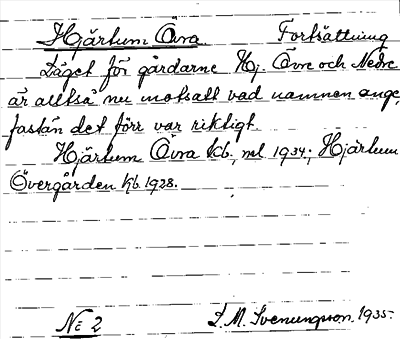 Hjärtum Övra Fortsättning
Läget för gårdarne Hj. Övre och Nedre
är alltså nu motsatt vad namnen ange,
fastän det förr var riktigt.
Hjärtum Övra kb, ml 1934; Hjärtum
Övergården kb 1928.
No 2 L. M. Svenungson 1935-